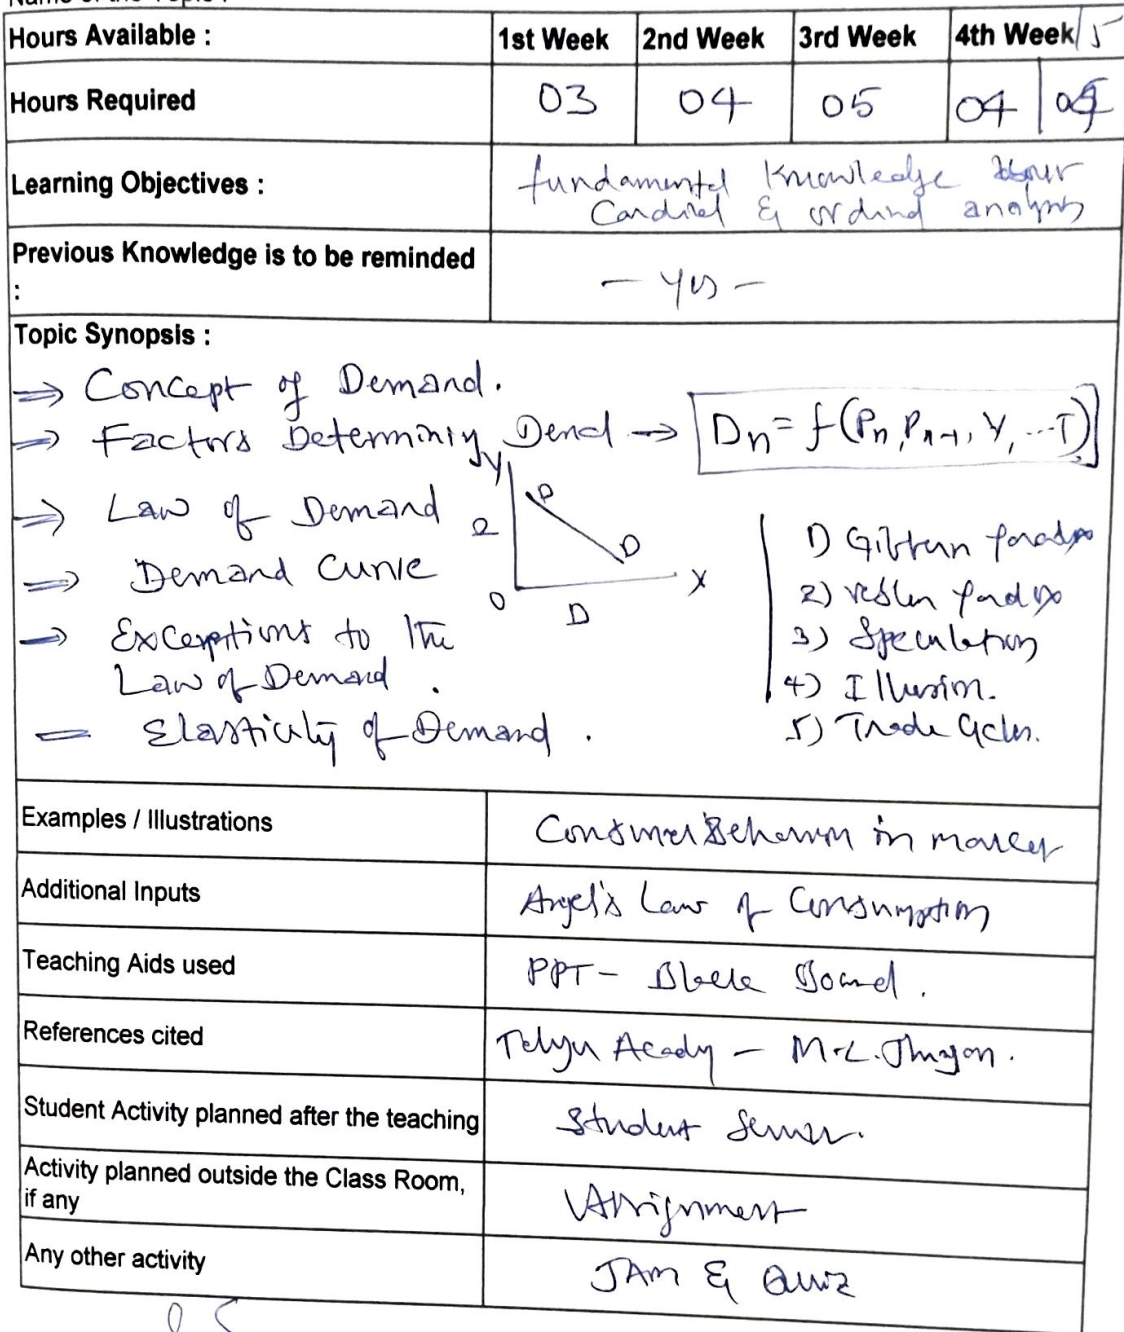 Name of the Topic :
Hours Available : 1st Week 2nd Week 3rd Week 4th Week/5
Hours Required 03 04 05 04
Learning Objectives : fundamental Knowledge
Cardinal & ordinal analysis
Previous Knowledge is to be reminded : - Yes -
Topic Synopsis :
⇒ Concept of Demand.
⇒ Factors Determining Demd → Dn = f(Pn, Pn-1, Y, ...T)
⇒ Law of Demand
⇒ Demand Curve
→ Exceptions to the
Law of Demand.
= Elasticity of Demand.
Y D
D
O D X
1)
2)
3) Speculation
4) Illusion.
5) Trade Cycles.
Examples / Illustrations Consumer Behaviour in market
Additional Inputs Angel's Law of Consumption
Teaching Aids used PPT - Black Board.
References cited Telugu Academy - M.L. Jhingon.
Student Activity planned after the teaching Student
Activity planned outside the Class Room, Assignment
if any
Any other activity JAM & Quiz